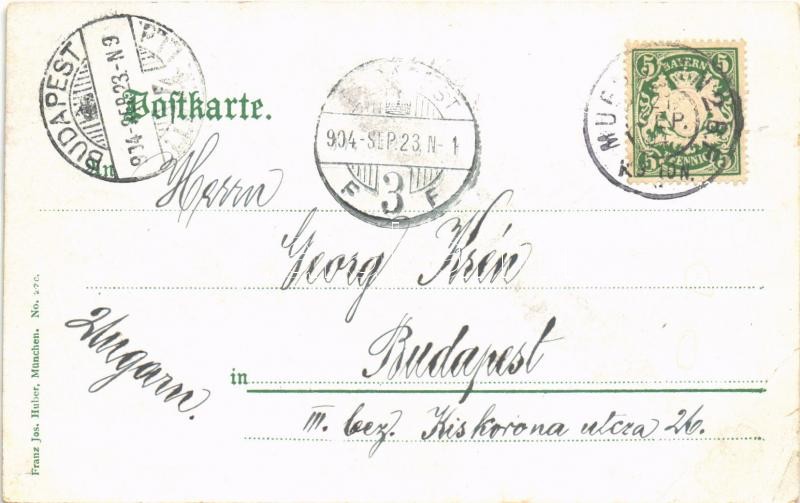 BUDAPEST
904-SEP.23.N9
904-SEP.23.N-1
F 3 F
BAYERN
5 5
5 PFENNIG 5
Postkarte.
An
Herrn
Georg Krén
Ungarn.
in Budapest
III. bez. Kiskorona utcza 26.
Franz Jos. Huber, München. No.